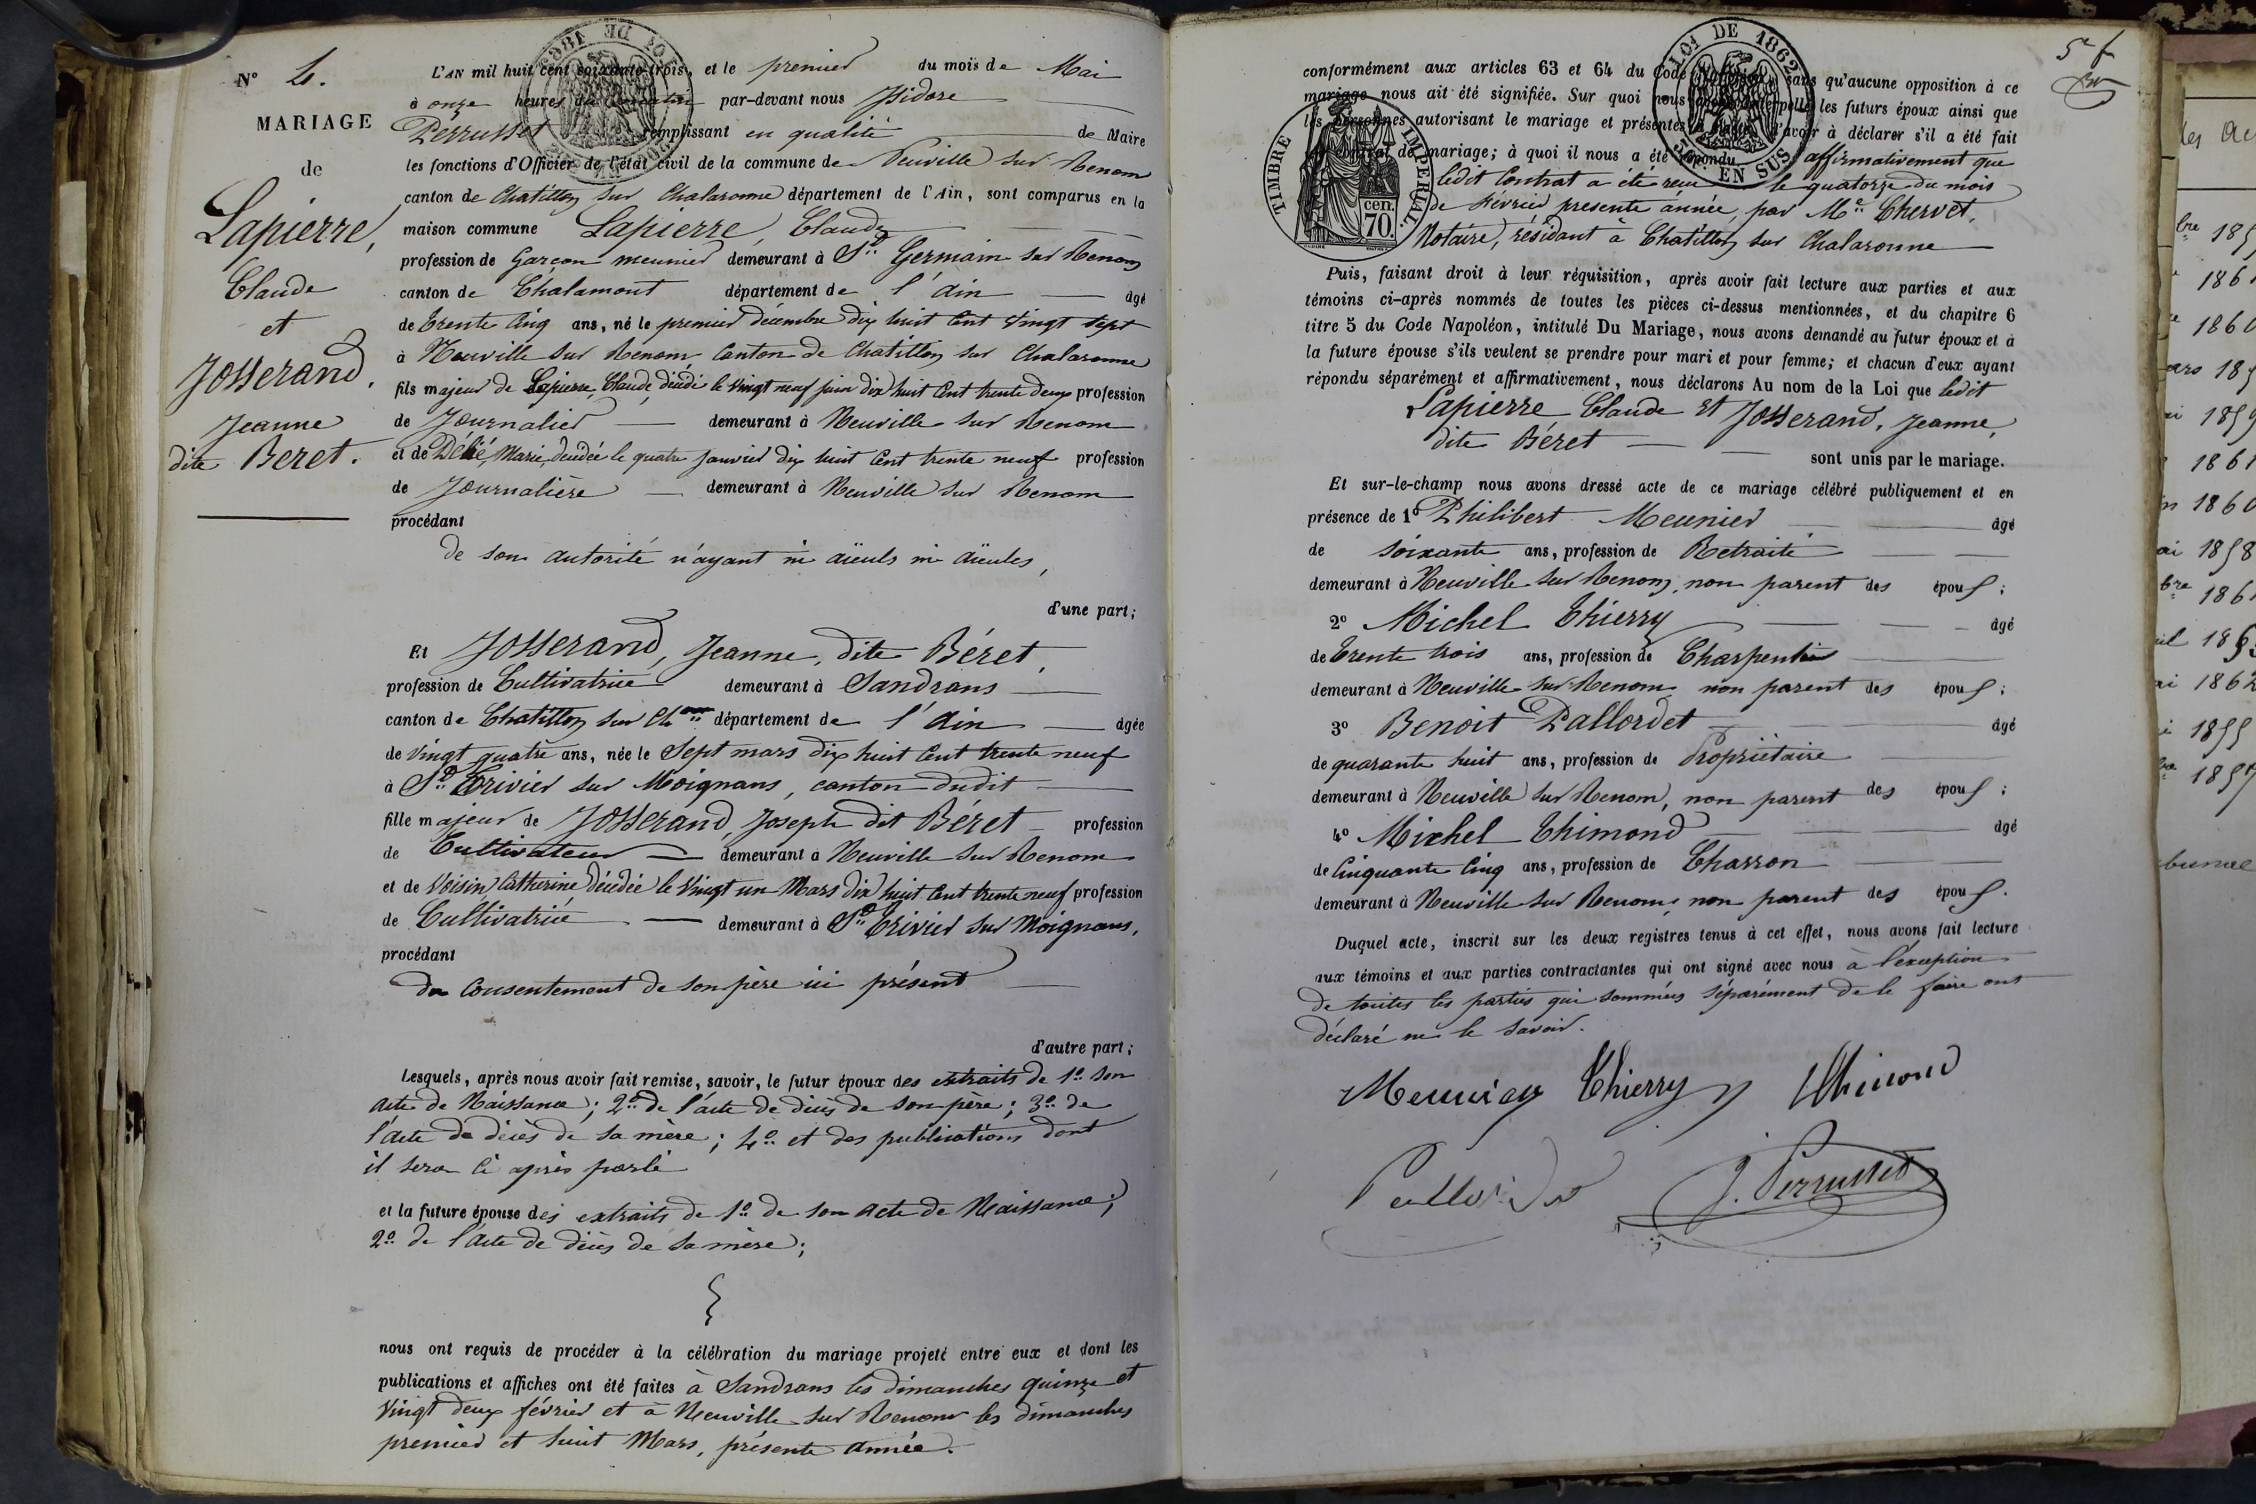 N° 4.
MARIAGE
de
Lapierre,
Claude
et
Josserand,
Jeanne
dite Beret.
L'AN mil huit cent soixante-trois, et le premier du mois de Mai
à onze heures du matin par-devant nous Isidore
Perrusset remplissant en qualité de Maire
les fonctions d'Officier de l'état civil de la commune de Neuville sur Renom
canton de Chatillon sur Chalaronne département de l'Ain, sont comparus en la
maison commune Lapierre, Claude
profession de Garçon meunier demeurant à St Germain sur Renom
canton de Chalamont département de l'Ain âgé
de trente cinq ans, né le premier decembre dix huit cent vingt sept
à Neuville sur Renom canton de Chatillon sur Chalaronne
fils majeur de Lapierre, Claude, décédé le vingt neuf juin dix huit cent trente deux profession
de Journalier demeurant à Neuville sur Renom
et de Délié, Marie, décédée le quatre janvier dix huit cent trente neuf profession
de Journalière demeurant à Neuville sur Renom
procédant
de son autorité n'ayant ni aïeuls ni aïeules,
d'une part;
Et Josserand, Jeanne, dite Béret,
profession de Cultivatrice demeurant à Sandrans
canton de Chatillon sur Ch.nne département de l'Ain âgée
de vingt quatre ans, née le Sept mars dix huit cent trente neuf
à St Trivier sur Moignans, canton dudit
fille majeur de Josserand, Joseph dit Béret profession
de Cultivateur demeurant à Neuville sur Renom
et de Voisin Catherine, décédée le vingt un Mars dix huit cent trente neuf profession
de Cultivatrice demeurant à St Trivier sur Moignans,
procédant
du consentement de son père ici présent
d'autre part;
Lesquels, après nous avoir fait remise, savoir, le futur époux des extraits de 1° son
acte de Naissance; 2° de l'acte de décès de son père; 3° de
l'acte de décès de sa mère; 4° et des publications dont
il sera ci après parlé
et la future épouse des extraits de 1° de son acte de Naissance;
2° de l'acte de décès de sa mère;
nous ont requis de procéder à la célébration du mariage projeté entre eux et dont les
publications et affiches ont été faites à Sandrans les dimanches quinze et
vingt deux février et à Neuville sur Renom les dimanches
premier et huit Mars, présente année.
5e f
LOI DE 1862
5e EN SUS
TIMBRE IMPÉRIAL.
cen.
70.
conformément aux articles 63 et 64 du Code Napoléon, sans qu'aucune opposition à ce
mariage nous ait été signifiée. Sur quoi nous avons interpellé les futurs époux ainsi que
les personnes autorisant le mariage et présentes d'avoir à déclarer s'il a été fait
contrat de mariage; à quoi il nous a été répondu affirmativement que
ledit Contrat a été reçu le quatorze du mois
de février présente année, par Me Chervet,
Notaire, résidant à Chatillon sur Chalaronne
Puis, faisant droit à leur réquisition, après avoir fait lecture aux parties et aux
témoins ci-après nommés de toutes les pièces ci-dessus mentionnées, et du chapitre 6
titre 5 du Code Napoléon, intitulé Du Mariage, nous avons demandé au futur époux et à
la future épouse s'ils veulent se prendre pour mari et pour femme; et chacun d'eux ayant
répondu séparément et affirmativement, nous déclarons Au nom de la Loi que ledit
Lapierre Claude et Josserand, Jeanne,
dite Béret
sont unis par le mariage.
Et sur-le-champ nous avons dressé acte de ce mariage célébré publiquement et en
présence de 1° Philibert Meunier âgé
de soixante ans, profession de Retraité
demeurant à Neuville sur Renom, non parent des époux;
2° Michel Thierry âgé
de trente trois ans, profession de Charpentier
demeurant à Neuville sur Renom non parent des époux;
3° Benoit Pallordet âgé
de quarante huit ans, profession de Propriétaire
demeurant à Neuville sur Renom, non parent des époux;
4° Michel Thimond âgé
de cinquante cinq ans, profession de Charron
demeurant à Neuville sur Renom, non parent des époux.
Duquel acte, inscrit sur les deux registres tenus à cet effet, nous avons fait lecture
aux témoins et aux parties contractantes qui ont signé avec nous à l'exception
de toutes les parties qui sommées séparément de le faire ont
déclaré ne le savoir.
Meunier Thierry Thimond
Pallordet J. Perrusset
1860
1859
1861
1860
1858
1862
1855